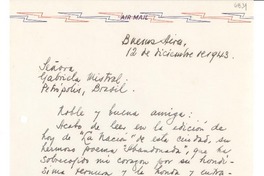 AIR MAIL
Buenos Aires,
12 de diciembre de 1943.
Señora
Gabriela Mistral:
Petrópolis, Brasil.
Noble y buena amiga:
Acabo de leer, en la edición de
hoy de "La Nación" de esta ciudad, su
hermoso poema "Abandonada", que ha
sobrecogido mi corazón por su hondí-
sima ternura y la honda y entra-